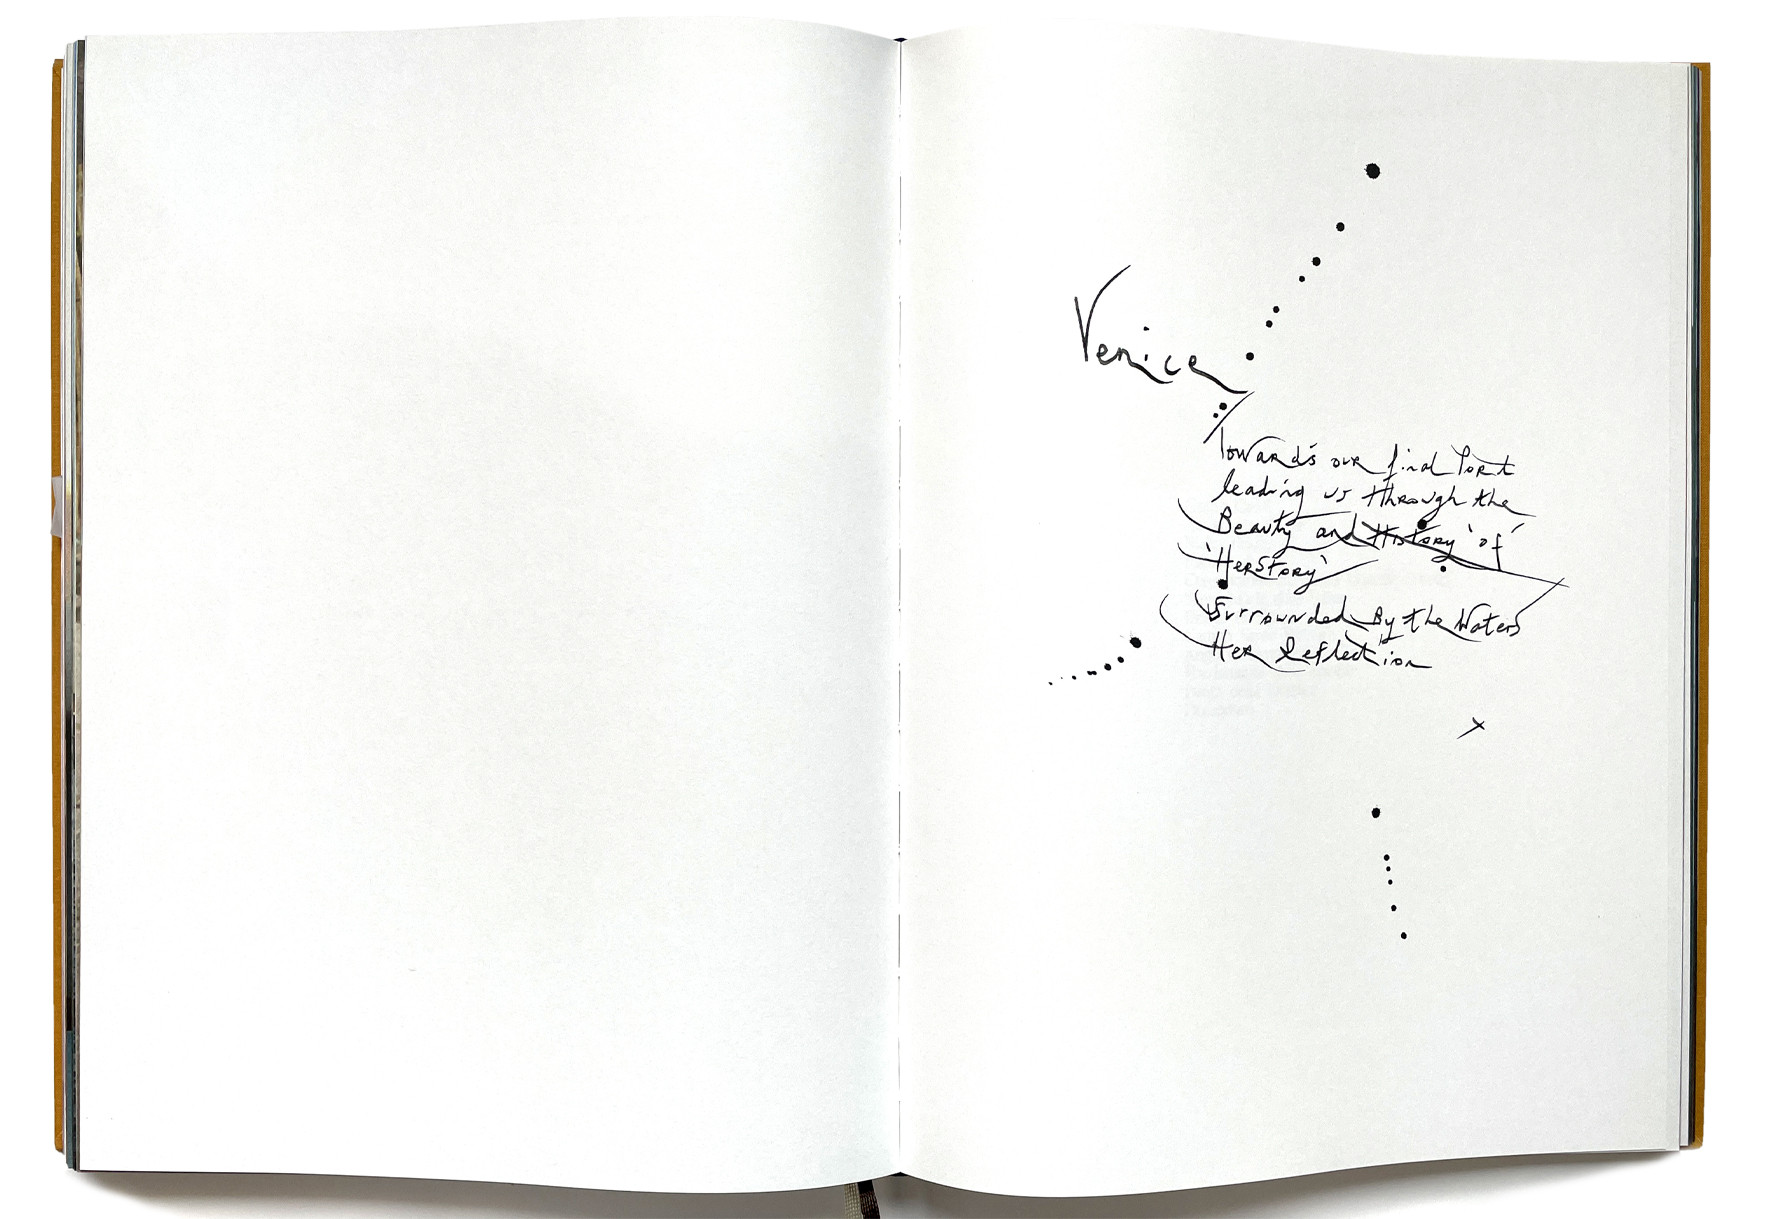 Venice
Towards our final Port
leading us through the
Beauty and History 'of'
'HerStory'
Surrounded By the Waters
Her Reflection